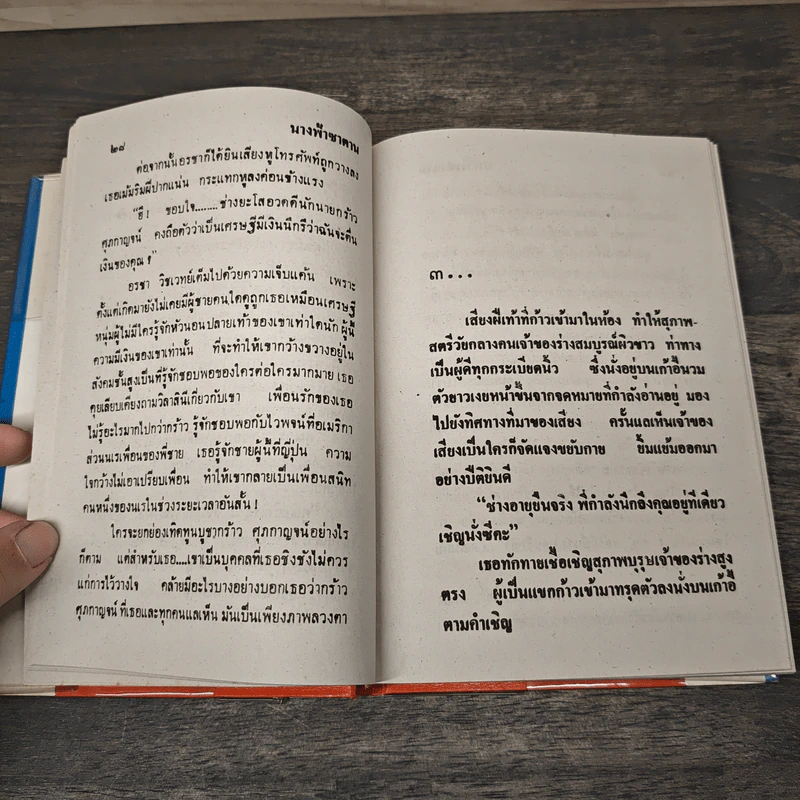 ๒๘
นางฟ้าซาตาน
ต่อจากนั้นอรชาก็ได้ยินเสียงหูโทรศัพท์ถูกวางลง
เธอเม้มริมฝีปากแน่น กระแทกหูลงค่อนข้างแรง
"ฮึ ! ขอบใจ........ช่างยะโสอวดดีนักนายกร้าว
ศุภกาญจน์ คงถือตัวว่าเป็นเศรษฐีมีเงินนึกรึว่าฉันจะคืน
เงินของคุณ !"
อรชา วิชเวทย์เต็มไปด้วยความเจ็บแค้น เพราะ
ตั้งแต่เกิดมายังไม่เคยมีผู้ชายคนใดดูถูกเธอเหมือนเศรษฐี
หนุ่มผู้ไม่มีใครรู้จักหัวนอนปลายเท้าของเขาเท่าใดนัก ผู้นี้
ความมีเงินของเขาเท่านั้น ที่จะทำให้เขากว้างขวางอยู่ใน
สังคมชั้นสูงเป็นที่รู้จักชอบพอของใครต่อใครมากมาย เธอ
คุยเลียบเคียงถามวิลาสินีเกี่ยวกับเขา เพื่อนรักของเธอ
ไม่รู้อะไรมากไปกว่ากร้าว รู้จักชอบพอกับไวพจน์ที่อเมริกา
ส่วนนเรเพื่อนของพี่ชาย เธอรู้จักชายผู้นี้ที่ญี่ปุ่น ความ
ใจกว้างไม่เอาเปรียบเพื่อน ทำให้เขากลายเป็นเพื่อนสนิท
คนหนึ่งของนเรในช่วงระยะเวลาอันสั้น !
ใครจะยกย่องเทิดทูนบูชากร้าว ศุภกาญจน์อย่างไร
ก็ตาม แต่สำหรับเธอ....เขาเป็นบุคคลที่เธอชิงชังไม่ควร
แก่การไว้วางใจ คล้ายมีอะไรบางอย่างบอกเธอว่ากร้าว
ศุภกาญจน์ ที่เธอและทุกคนแลเห็น มันเป็นเพียงภาพลวงตา
๓...
เสียงฝีเท้าที่ก้าวเข้ามาในห้อง ทำให้สุภาพ-
สตรีวัยกลางคนเจ้าของร่างสมบูรณ์ผิวขาว ท่าทาง
เป็นผู้ดีทุกกระเบียดนิ้ว ซึ่งนั่งอยู่บนเก้าอี้นวม
ตัวยาวเงยหน้าขึ้นจากจดหมายที่กำลังอ่านอยู่ มอง
ไปยังทิศทางที่มาของเสียง ครั้นแลเห็นเจ้าของ
เสียงเป็นใครก็จัดแจงขยับกาย ยิ้มแย้มออกมา
อย่างปิติยินดี
"ช่างอายุยืนจริง พี่กำลังนึกถึงคุณอยู่ทีเดียว
เชิญนั่งซีคะ"
เธอทักทายเชื้อเชิญสุภาพบุรุษเจ้าของร่างสูง
ตรง ผู้เป็นแขกก้าวเข้ามาทรุดตัวลงนั่งบนเก้าอี้
ตามคำเชิญ